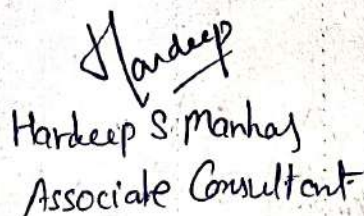 Hardeep
Hardeep S. Manhas
Associate Consultant